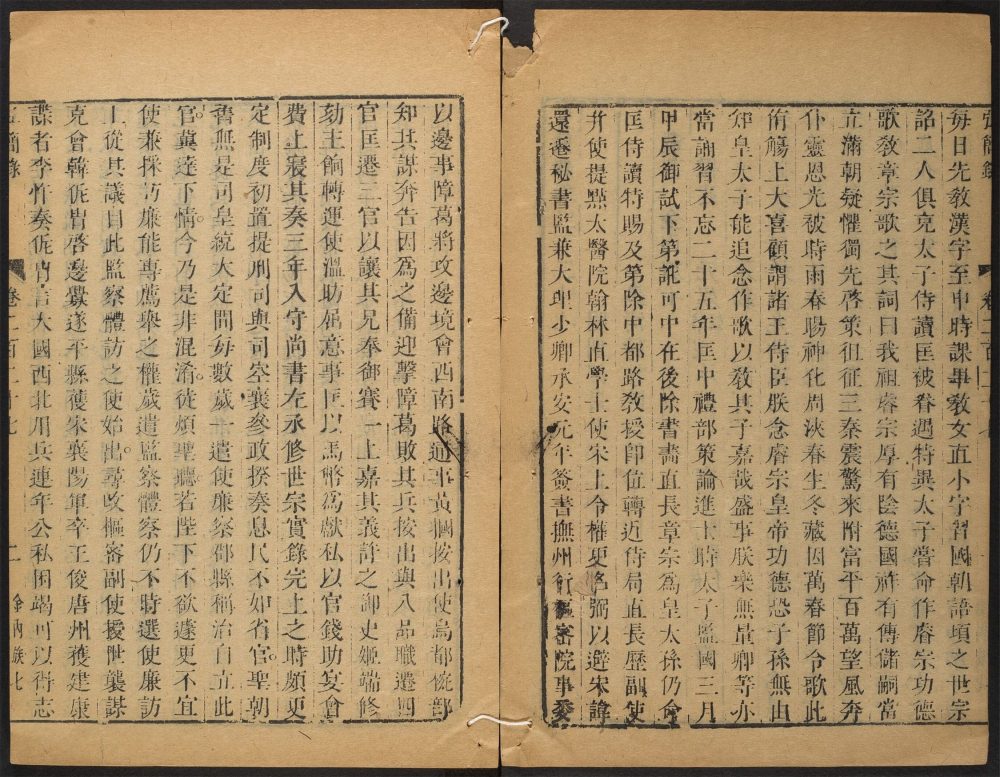 每日先教漢字至申時課畢教女直小字習國朝語頃之世宗
詔二人俱充太子侍讀匡被眷遇特異太子嘗命作睿宗功德
歌教章宗歌之其詞曰我祖睿宗厚有陰德國祚有傳儲嗣當
立滿朝疑懼獨先啓策徂征三秦震驚來附富平百萬望風奔
仆靈恩光被時雨春暘神化周浹春生冬藏因萬春節令歌此
侑觴上大喜顧謂諸王侍臣朕念睿宗皇帝功德恐子孫無由
知皇太子能追念作歌以教其子嘉哉盛事朕樂無量卿等亦
當誦習不忘二十五年匡中禮部策論進士時太子監國三月
甲辰御試下第詎可中在後除書畫直長章宗為皇太孫仍命
匡侍讀特賜及第除中都路教授印位轉近侍局直長歷副使
并使提點太醫院翰林直學士使宋上令權更名弼以避宋諱
還遷秘書監兼大理少卿承安元年簽書撫州行樞密院事委
以邊事障葛將攻邊境會西南路通事黃摑按出使烏都椀部
知其謀奔告因為之備迎擊障葛敗其兵按出與八品職遷四
官匡遷三官以讓其兄奉御賽一上嘉其義許之御史姬端修
劾主餉轉運使溫昉屈意事匡以馬幣為獻私以官錢助宴會
費上寢其奏三年入守尚書左丞修世宗實錄完上之時頗更
定制度初置提刑司與司空襄參政揆奏息民不如省官聖朝
舊無是司皇統大定間每數歲一遣使廉察郡縣稱治自立此
官冀達下情今乃是非混淆徒煩聖聽若陛下不欲遽更不宜
使兼採訪廉能專薦舉之權歲遣監察體察仍不時選使廉訪
上從其議自此監察體訪之使始出尋改樞密副使授世襲謀
克會韓侂冑啓邊釁遂平縣獲宋襄陽軍卒王俊唐州獲建康
諜者李忤奏侂冑言大國西北用兵連年公私困竭可以得志
卷二百二十七
二